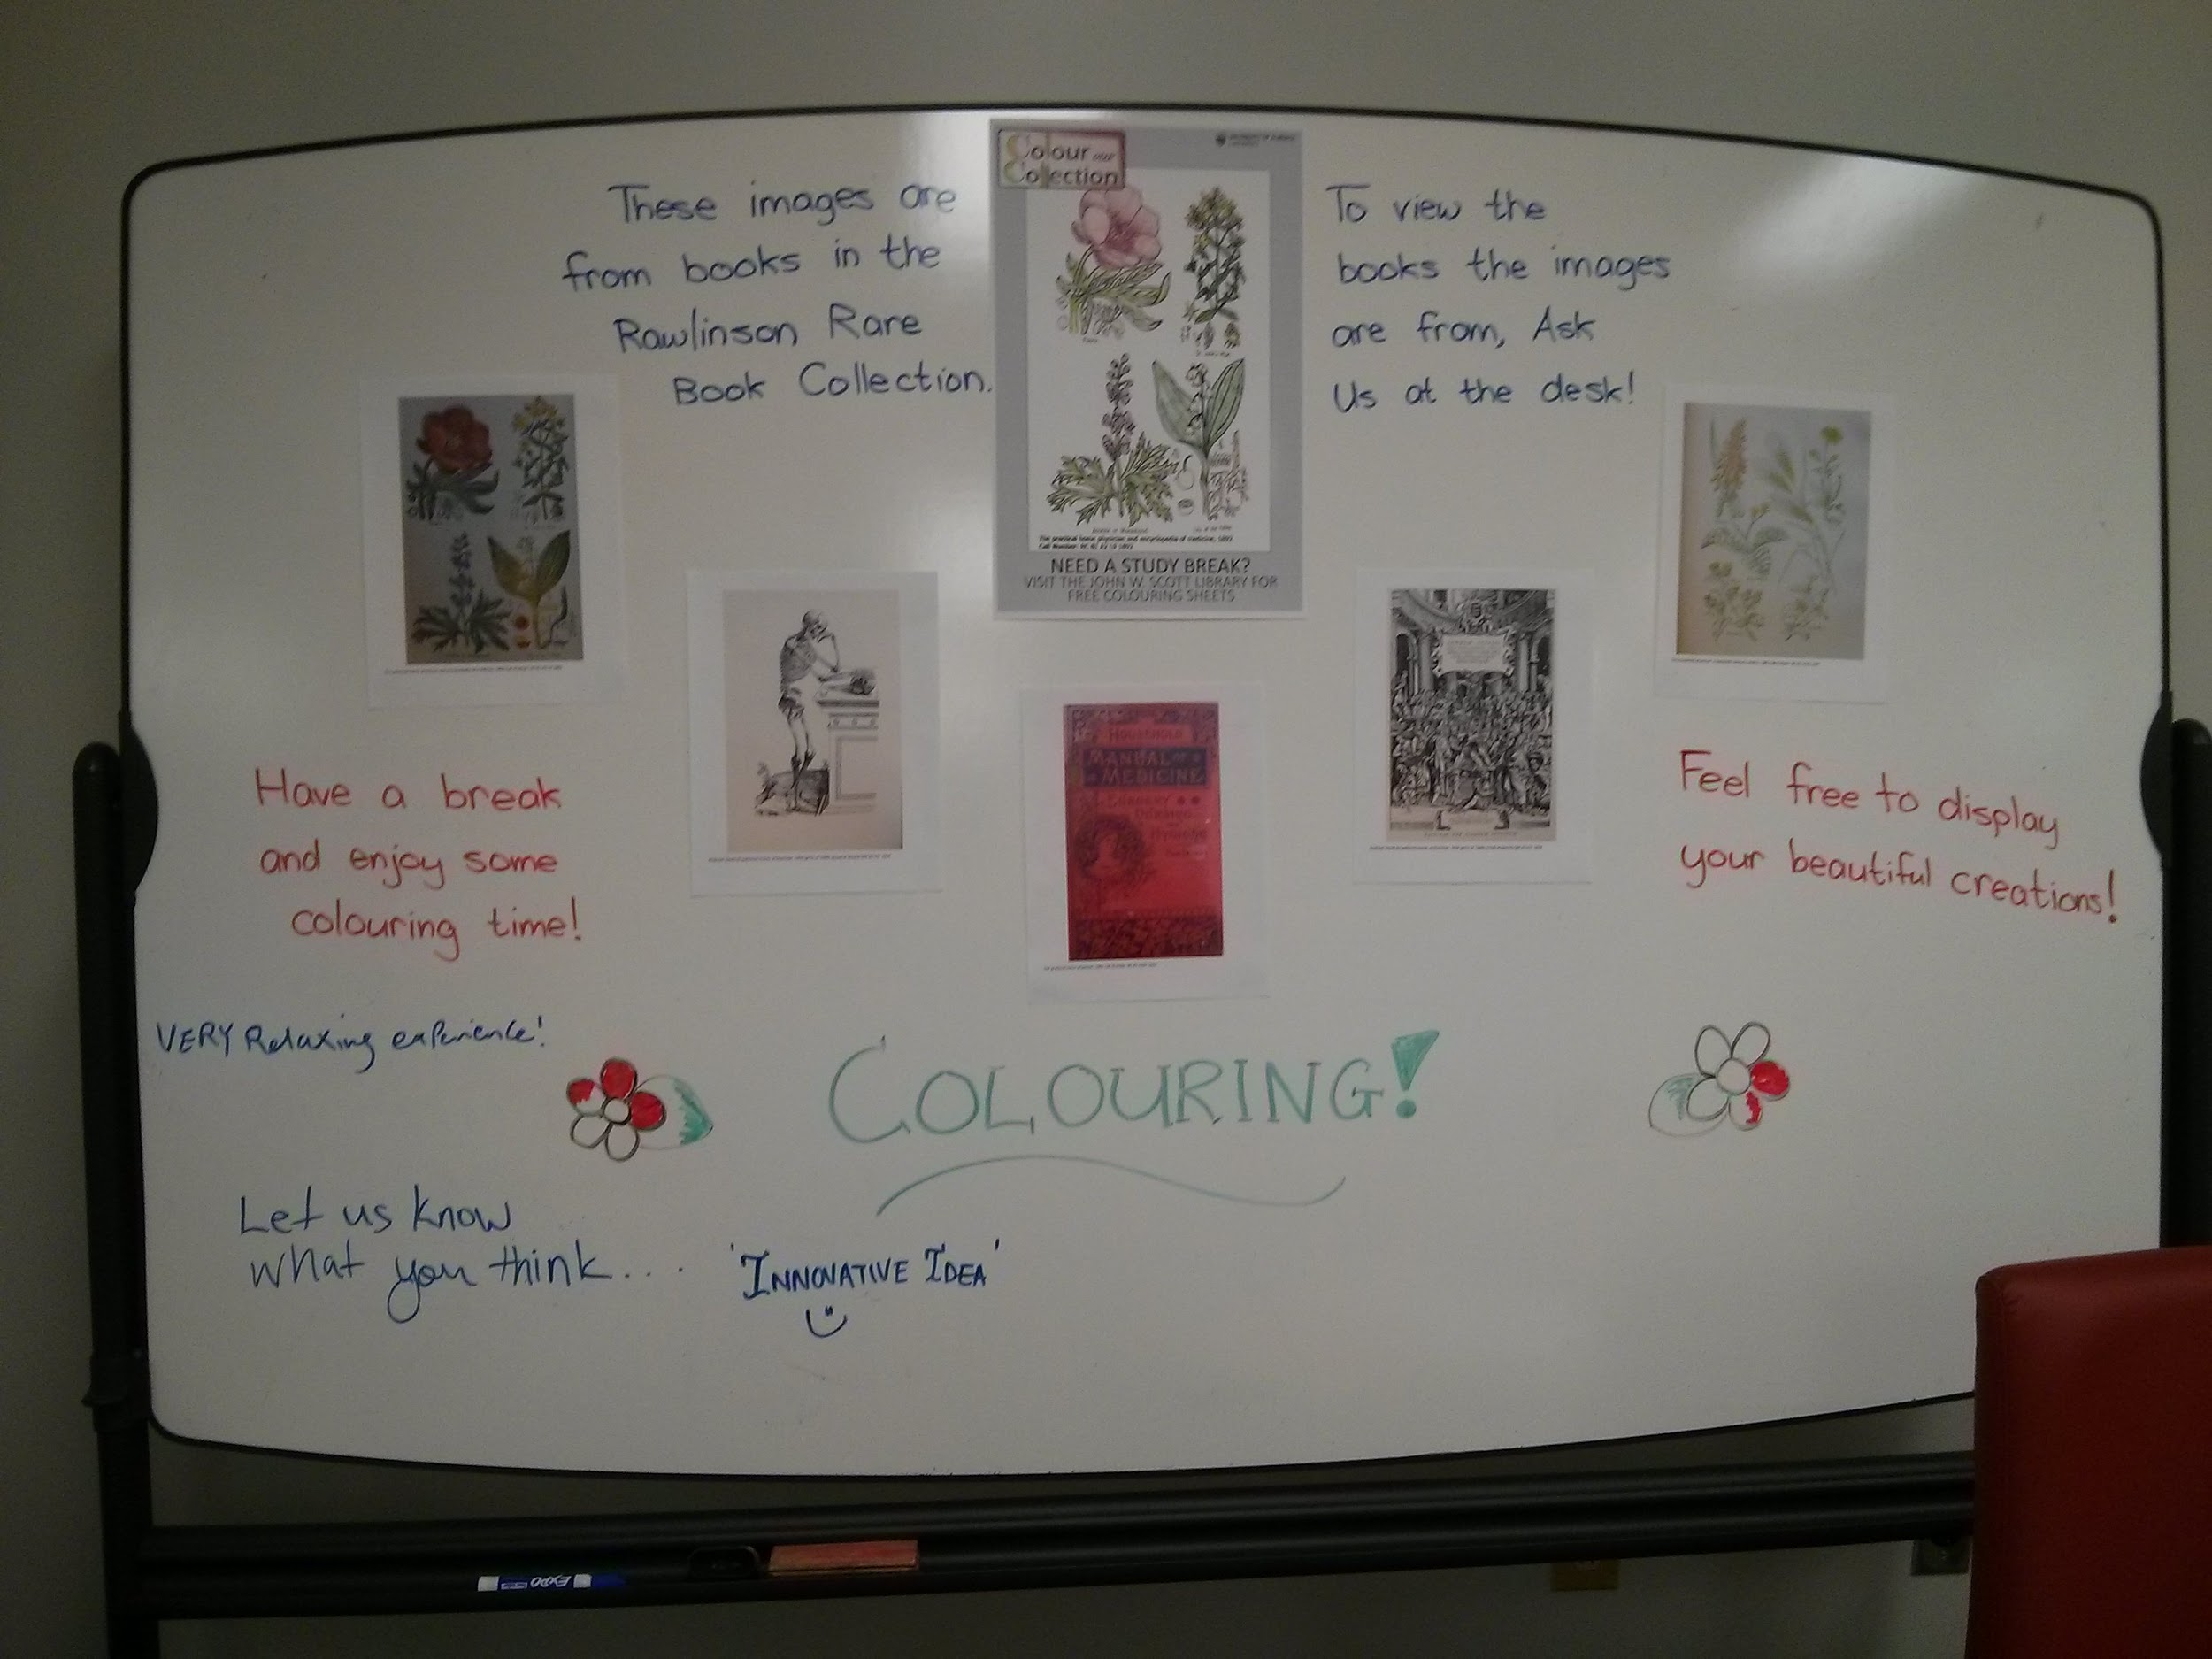 These images are
from books in the
Rawlinson Rare
Book Collection.
Colour our
Collection
The practical home physician and encyclopedia of medicine, 1892
NEED A STUDY BREAK?
VISIT THE JOHN W. SCOTT LIBRARY FOR
FREE COLOURING SHEETS
To view the
books the images
are from, Ask
Us at the desk!
HOUSEHOLD
MANUAL OF
MEDICINE
Have a break
and enjoy some
colouring time!
Feel free to display
your beautiful creations!
VERY Relaxing experience!
COLOURING!
Let us know
what you think....
'INNOVATIVE IDEA'
EXPO